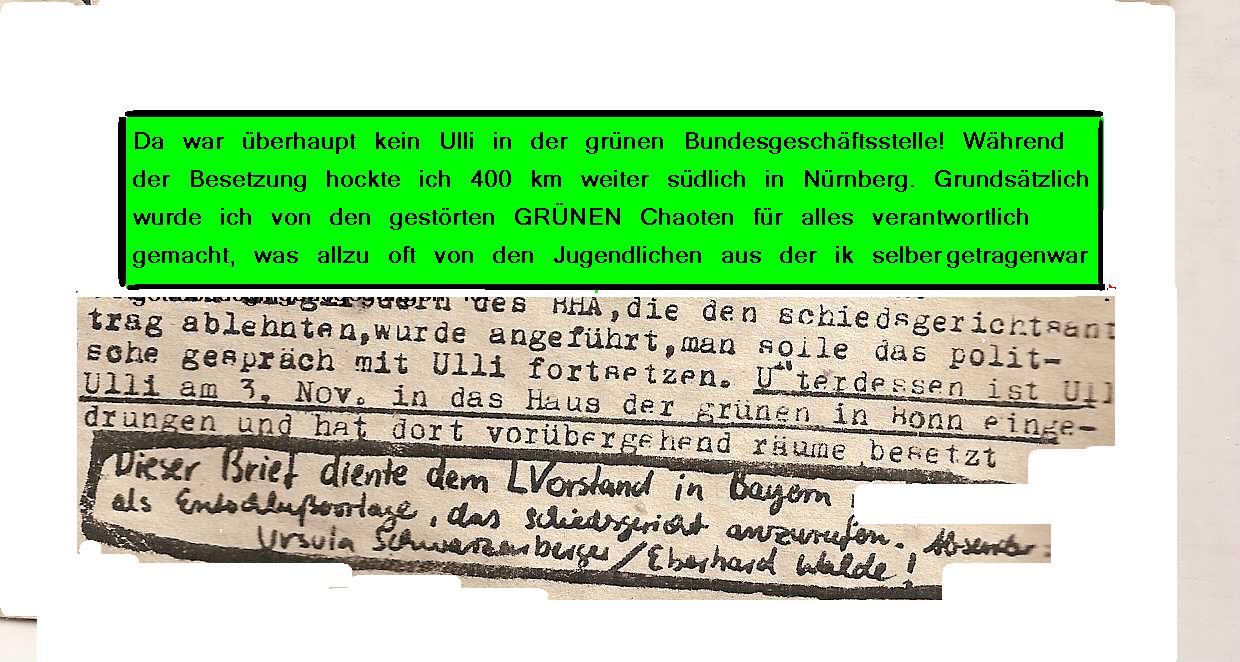 Da war überhaupt kein Ulli in der grünen Bundesgeschäftsstelle! Während
der Besetzung hockte ich 400 km weiter südlich in Nürnberg. Grundsätzlich
wurde ich von den gestörten GRÜNEN Chaoten für alles verantwortlich
gemacht, was allzu oft von den Jugendlichen aus der ik selber getragenwar
des BHA, die den schiedsgerichtsant
trag ablehnten, wurde angeführt, man solle das polit-
sche gespräch mit Ulli fortsetzen. Unterdessen ist Ull
Ulli am 3. Nov. in das Haus der grünen in Bonn einge-
drungen und hat dort vorübergehend räume besetzt
Dieser Brief diente dem LVorstand in Bayern
als Entschlußvorlage, das schiedsgericht anzurufen. Absender:
Ursula Schwarzenberger / Eberhard Walde!